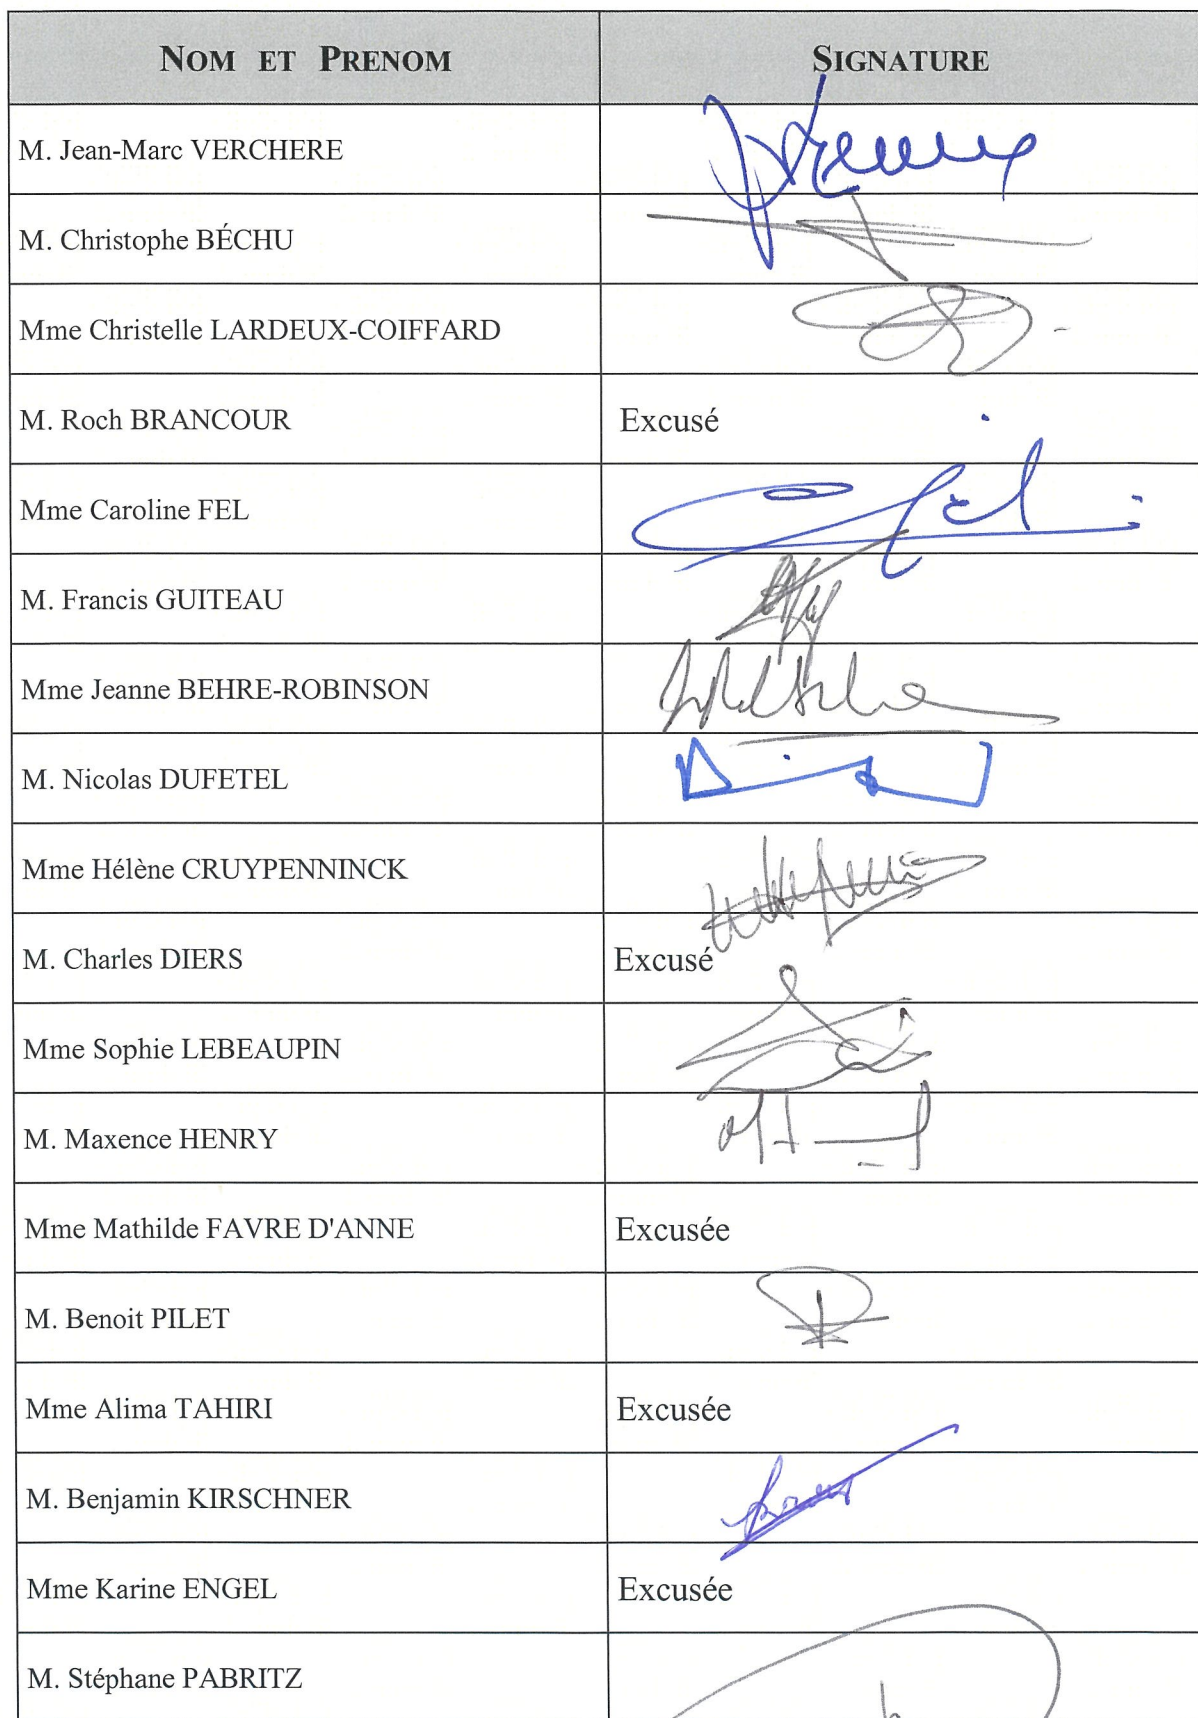 NOM ET PRENOM SIGNATURE
M. Jean-Marc VERCHERE
M. Christophe BÉCHU
Mme Christelle LARDEUX-COIFFARD
M. Roch BRANCOUR Excusé
Mme Caroline FEL
M. Francis GUITEAU
Mme Jeanne BEHRE-ROBINSON
M. Nicolas DUFETEL
Mme Hélène CRUYPENNINCK
M. Charles DIERS Excusé
Mme Sophie LEBEAUPIN
M. Maxence HENRY
Mme Mathilde FAVRE D'ANNE Excusée
M. Benoit PILET
Mme Alima TAHIRI Excusée
M. Benjamin KIRSCHNER
Mme Karine ENGEL Excusée
M. Stéphane PABRITZ